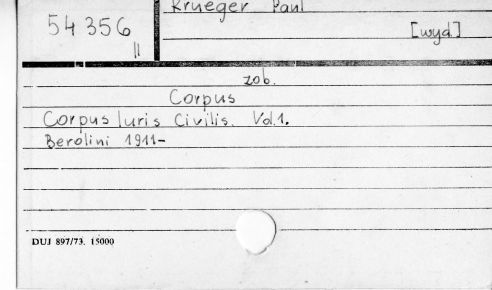 Krueger Paul
54 356
II
[wyd.]
zob.
Corpus
Corpus Iuris Civilis. Vol. 1.
Berolini 1911-
DUJ 897/73. 15000